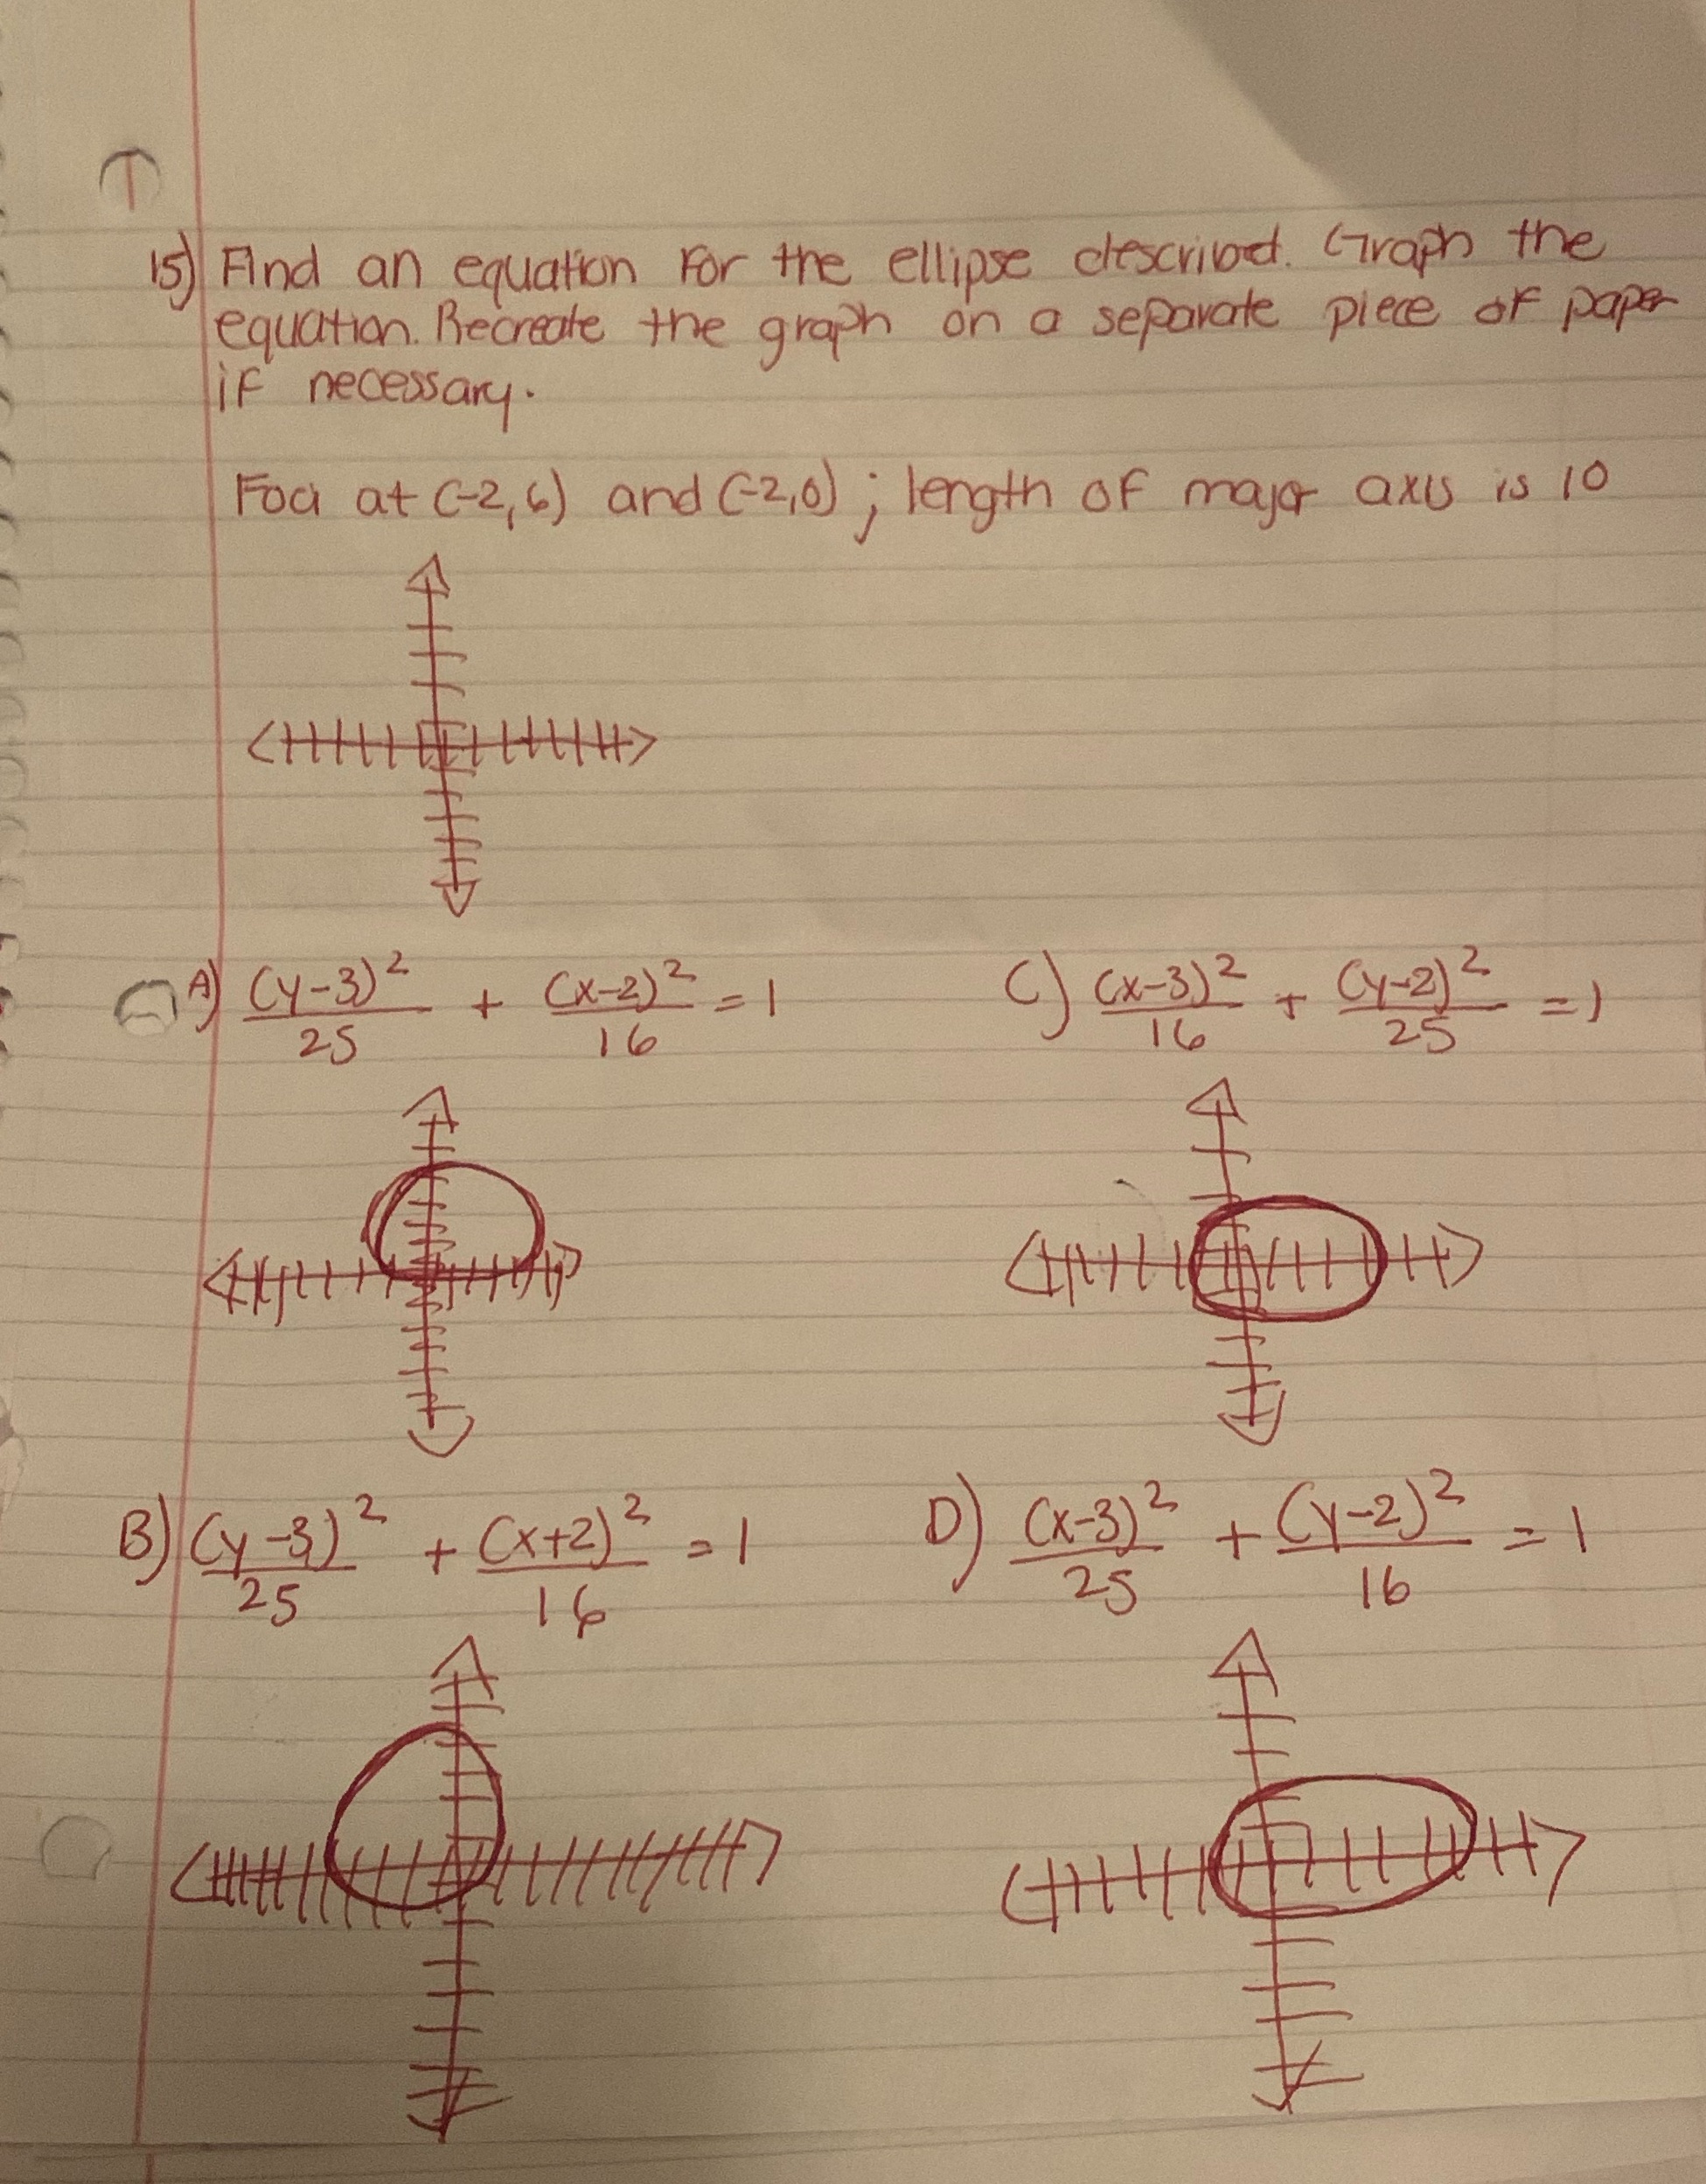 15) Find an equation for the ellipse described. Graph the
equation. Recreate the graph on a separate piece of paper
if necessary.
Foci at (-2,6) and (-2,0); length of major axis is 10
A) (y-3)²/25 + (x-2)²/16 = 1
C) (x-3)²/16 + (y-2)²/25 = 1
B) (y-3)²/25 + (x+2)²/16 = 1
D) (x-3)²/25 + (y-2)²/16 = 1